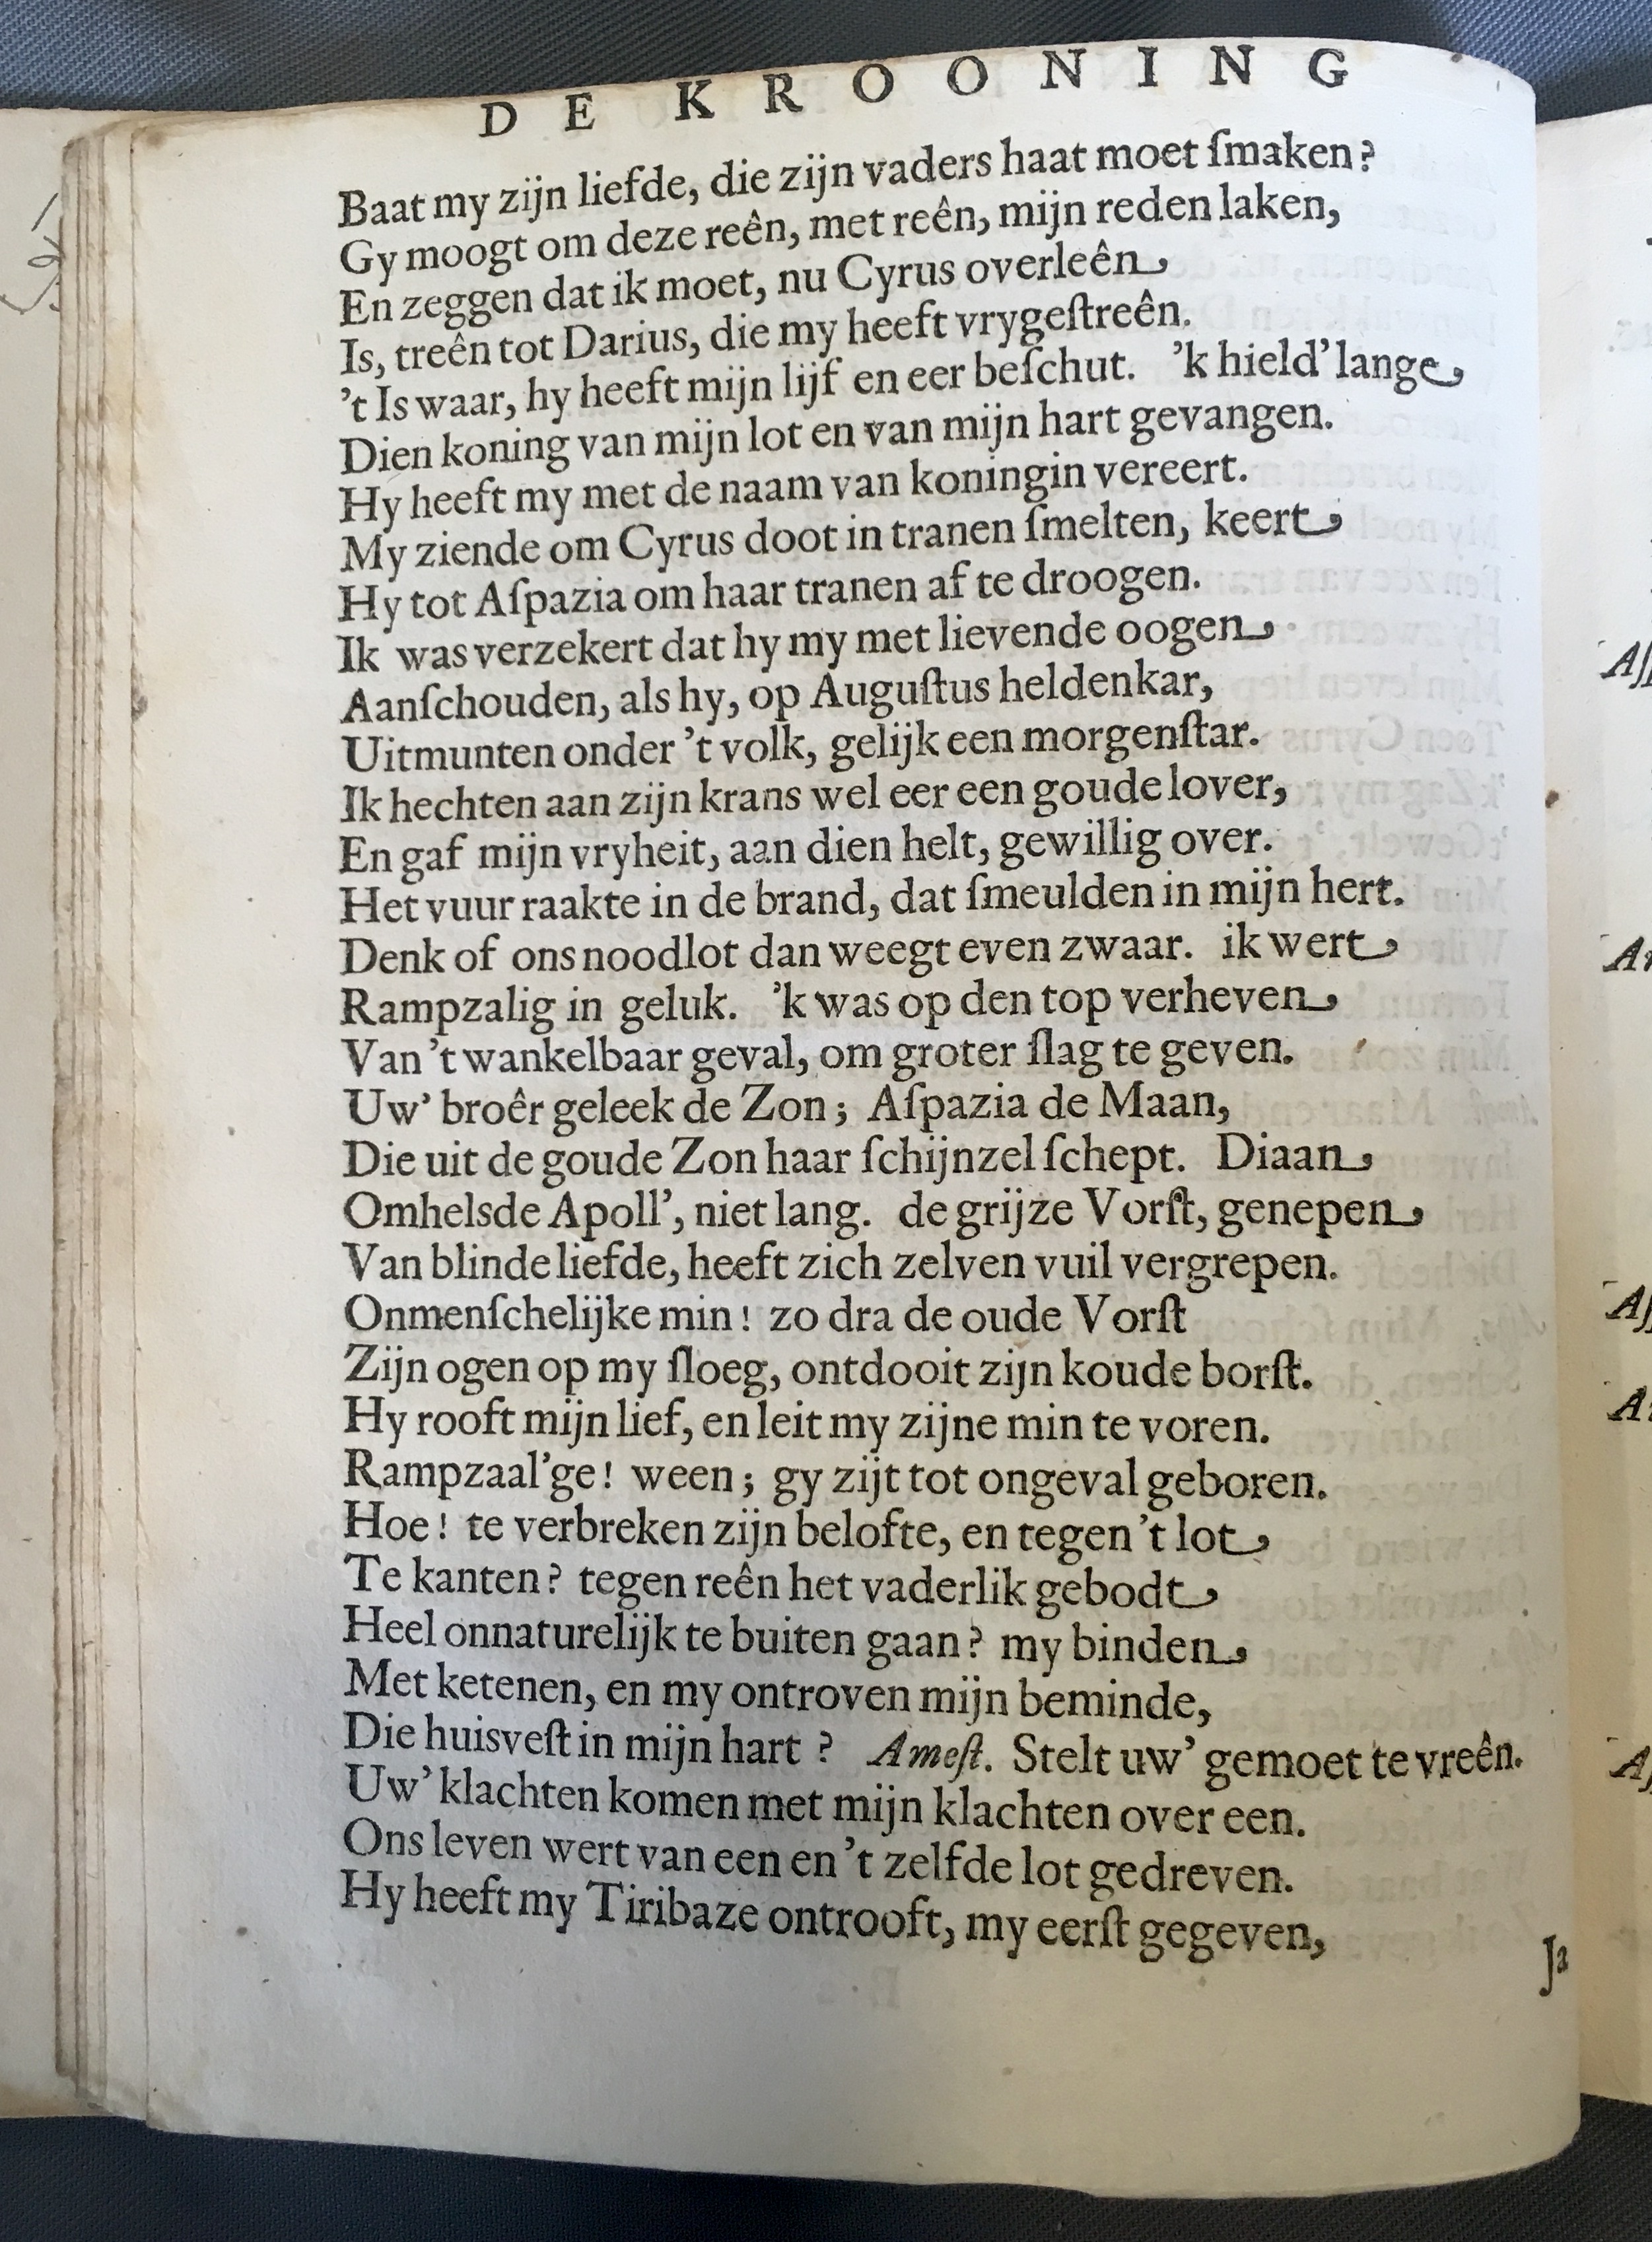 DE KROONING
Baat my zijn liefde, die zijn vaders haat moet ſmaken?
Gy moogt om deze reên, met reên, mijn reden laken,
En zeggen dat ik moet, nu Cyrus overleên
Is, treên tot Darius, die my heeft vrygeſtreên.
't Is waar, hy heeft mijn lijf en eer beſchut. 'k hield' lange
Dien koning van mijn lot en van mijn hart gevangen.
Hy heeft my met de naam van koningin vereert.
My ziende om Cyrus doot in tranen ſmelten, keert
Hy tot Aſpazia om haar tranen af te droogen.
Ik was verzekert dat hy my met lievende oogen
Aanſchouden, als hy, op Auguſtus heldenkar,
Uitmunten onder 't volk, gelijk een morgenſtar.
Ik hechten aan zijn krans wel eer een goude lover,
En gaf mijn vryheit, aan dien helt, gewillig over.
Het vuur raakte in de brand, dat ſmeulden in mijn hert.
Denk of ons noodlot dan weegt even zwaar. ik wert
Rampzalig in geluk. 'k was op den top verheven
Van 't wankelbaar geval, om groter ſlag te geven.
Uw' broêr geleek de Zon; Aſpazia de Maan,
Die uit de goude Zon haar ſchijnzel ſchept. Diaan
Omhelsde Apoll', niet lang. de grijze Vorſt, genepen
Van blinde liefde, heeft zich zelven vuil vergrepen.
Onmenſchelijke min! zo dra de oude Vorſt
Zijn ogen op my ſloeg, ontdooit zijn koude borſt.
Hy rooft mijn lief, en leit my zijne min te voren.
Rampzaal'ge! ween; gy zijt tot ongeval geboren.
Hoe! te verbreken zijn belofte, en tegen 't lot
Te kanten? tegen reên het vaderlik gebodt
Heel onnaturelijk te buiten gaan? my binden
Met ketenen, en my ontroven mijn beminde,
Die huisveſt in mijn hart? Ameſt. Stelt uw' gemoet te vreên.
Uw' klachten komen met mijn klachten over een.
Ons leven wert van een en 't zelfde lot gedreven.
Hy heeft my Tiribaze ontrooft, my eerſt gegeven,
Ja